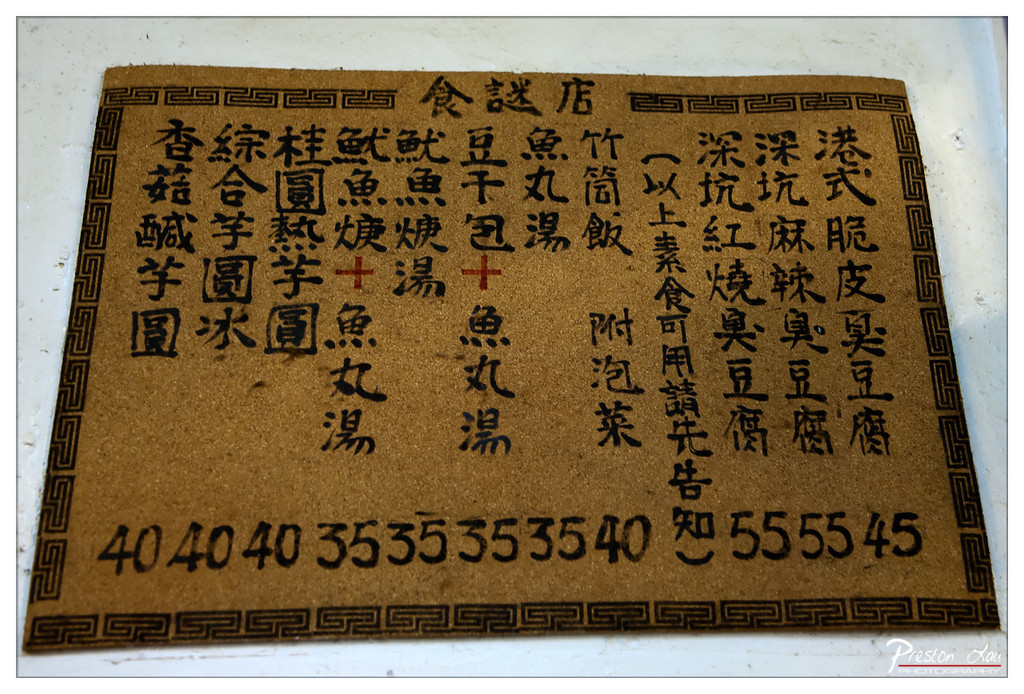 食謎店
港式脆皮臭豆腐 45
深坑麻辣臭豆腐 55
深坑紅燒臭豆腐 55
(以上素食可用請先告知)
竹筒飯 附泡菜 40
魚丸湯 35
豆干包+魚丸湯 35
魷魚焿湯 35
魷魚焿+魚丸湯 35
桂圓熱芋圓 40
綜合芋圓冰 40
香菇鹹芋圓 40
Preston Lau
PHOTOGRAPHY